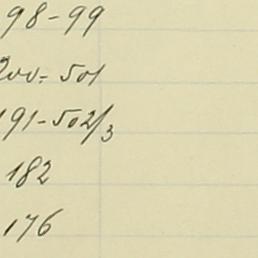 98-99
200-501
191-502/3
182
176